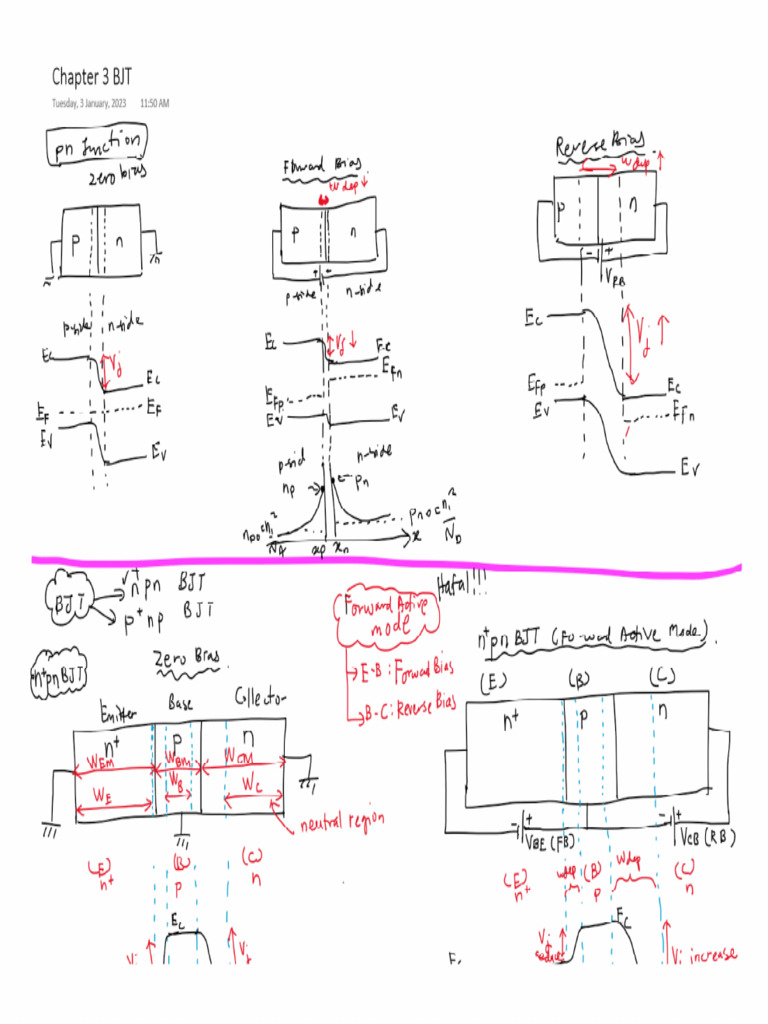 Chapter 3 BJT
Tuesday, 3 January, 2023 11:50 AM
pn Junction
zero bias
p n
p-side n-side
Ec Vj Ec
EF EF
EV EV
Forward Bias
Wdep ↓
p n
+ -
p-side n-side
Ec Vj ↓ Ec
EFn
EFp
EV EV
p-side n-side
np pn
npo ∝ ni²/NA xp xn x pno ∝ ni²/ND
Reverse Bias
Wdep ↑
p n
- +
VRB
Ec Vj ↑
EFp Ec
EV EFn
EV
BJT
✓ n+pn BJT
p+np BJT
Hafal!!!
Forward Active mode
→ E-B: Forward Bias
→ B-C: Reverse Bias
n+pn BJT
Zero Bias.
Emitter Base Collector
n+ p n
WEm WBm WCm
WE WB WC
neutral region
(E) (B) (C)
n+ p n
Ec
Vj Vj
n+pn BJT (Forward Active Mode).
(E) (B) (C)
n+ p n
- + - +
VBE (FB) VCB (RB)
(E) Wdep (B) Wdep (C)
n+ p n
Vj reduce Ec
Vj increase